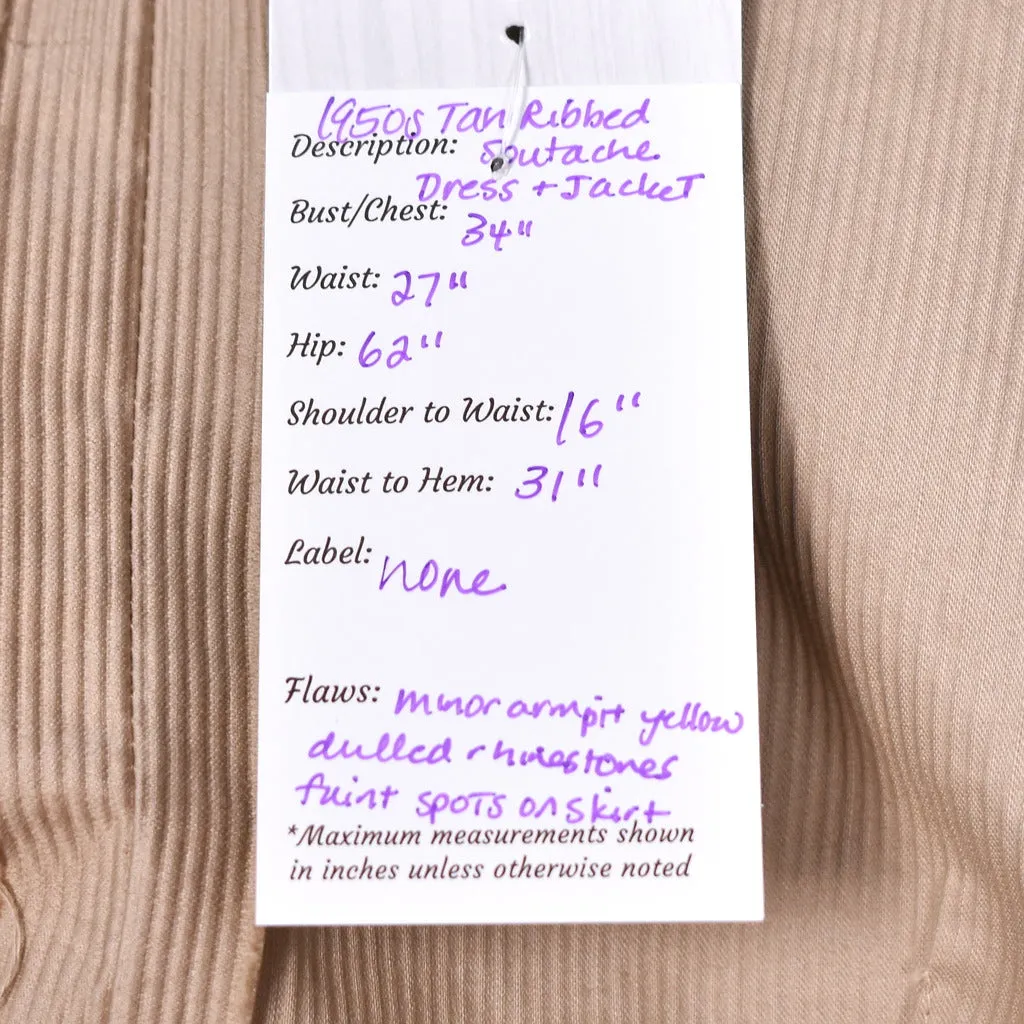 1950s Tan Ribbed
Description: Soutache
Dress + Jacket
Bust/Chest: 34"
Waist: 27"
Hip: 62"
Shoulder to Waist: 16"
Waist to Hem: 31"
Label: none
Flaws: minor armpit yellow
dulled rhinestones
faint spots on skirt
*Maximum measurements shown
in inches unless otherwise noted